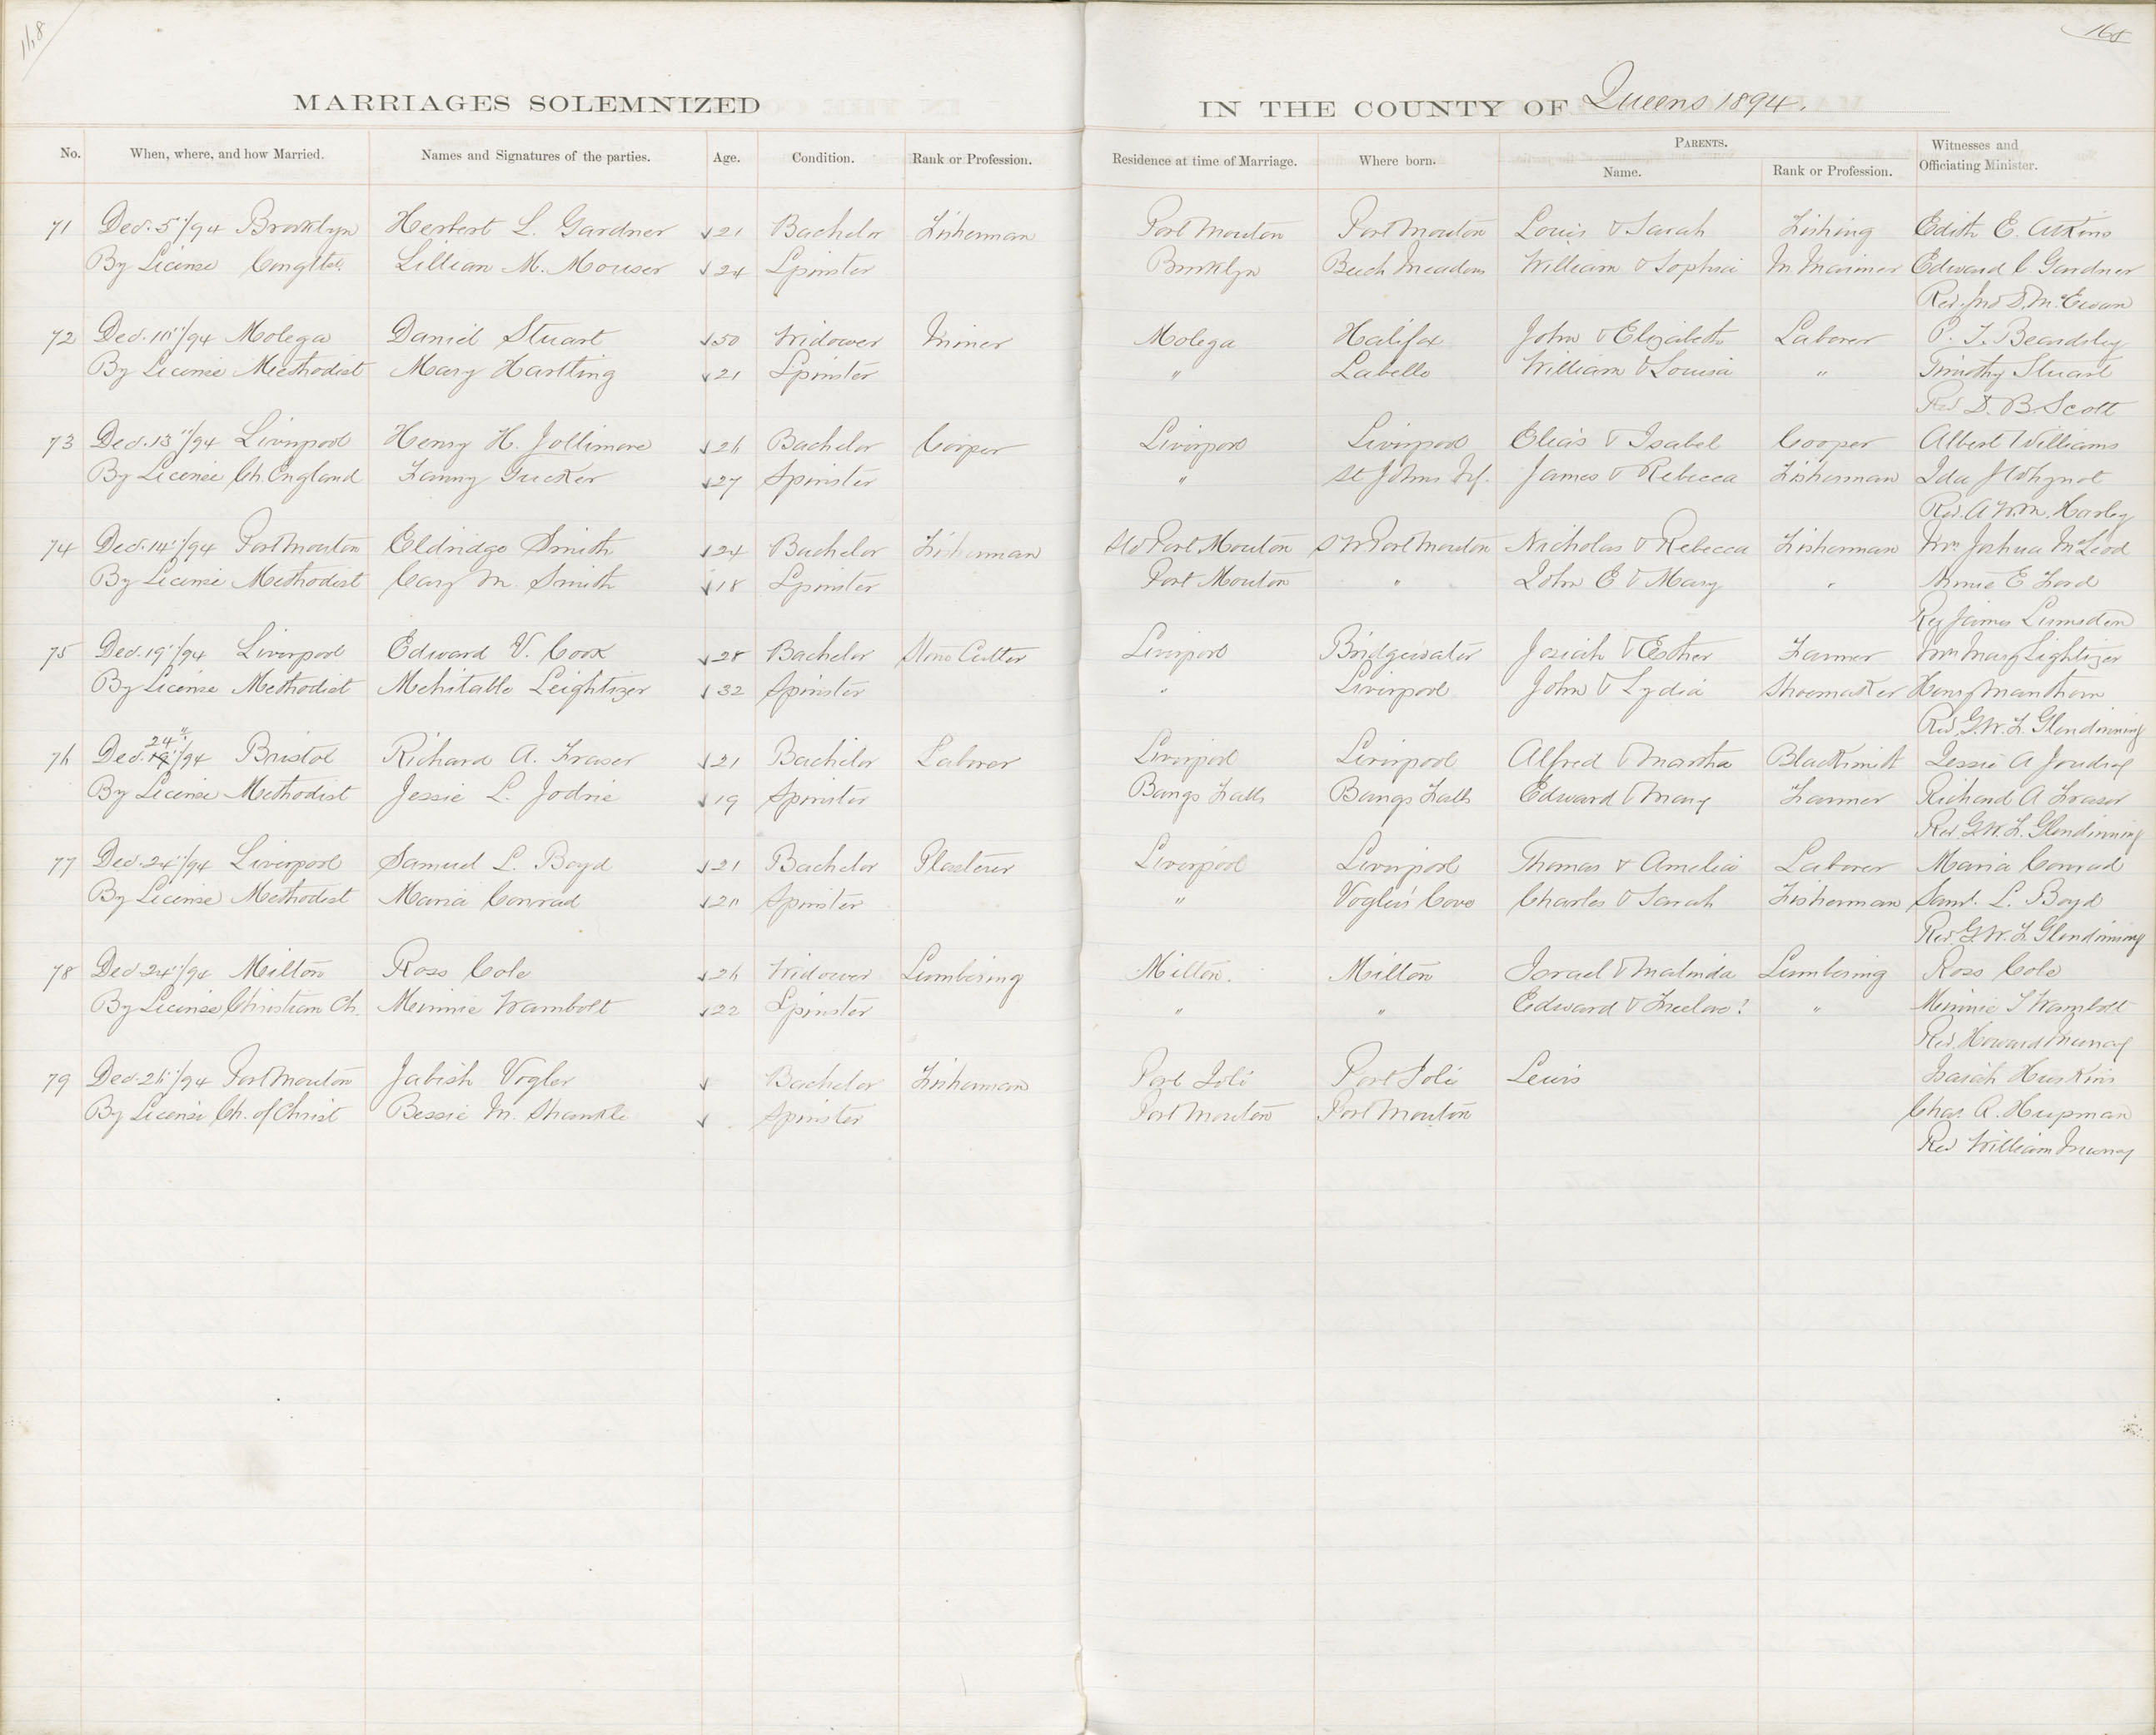 168
168
MARRIAGES SOLEMNIZED IN THE COUNTY OF Queens 1894.
No. When, where, and how Married. Names and Signatures of the parties. Age. Condition. Rank or Profession. Residence at time of Marriage. Where born. PARENTS. Name. Rank or Profession. Witnesses and Officiating Minister.
71 Dec. 5"/94 Brooklyn Herbert L. Gardner 21 Bachelor Fisherman Port Mouton Port Mouton Louis & Sarah Fishing Edith E. Atkins
By License Congltst. Lillian M. Mouser 24 Spinster Brooklyn Beech Meadows William & Sophia M. Mariner Edward C. Gardner
Rev. Jno D. McEwan
72 Dec. 10"/94 Molega Daniel Stuart 50 Widower Miner Molega Halifax John & Elizabeth Laborer P. T. Beardsley
By License Methodist Mary Hartling 21 Spinster " Labelle William & Louisa " Timothy Stuart
Rev D. B. Scott
73 Dec. 13"/94 Liverpool Henry H. Jollimore 26 Bachelor Cooper Liverpool Liverpool Elias & Isabel Cooper Albert Williams
By License Ch. England Fanny Tucker 27 Spinster " St Johns Nf. James & Rebecca Fisherman Ida J Whynot
Rev. A W. M. Harley
74 Dec. 14"/94 Port Mouton Eldridge Smith 24 Bachelor Fisherman SW Port Mouton S W Port Mouton Nicholas & Rebecca Fisherman Joshua McLeod
By License Methodist M. Smith 18 Spinster Port Mouton " John E & Mary " Annie E Ford
Rev James Lumsden
75 Dec. 19"/94 Liverpool Edward V. Cook 28 Bachelor Stone Cutter Liverpool Bridgewater Josiah & Esther Farmer Mary Lightizer
By License Methodist Mehitable Leightizer 32 Spinster " Liverpool John & Lydia Shoemaker Henry Manthorn
Rev. G. W. F. Glendinning
76 Dec. 24"/94 Bristol Richard A. Fraser 21 Bachelor Laborer Liverpool Liverpool Alfred & Martha Blacksmith Jessie A Joudrey
By License Methodist Jessie L. Jodrie 19 Spinster Bangs Falls Bangs Falls Edward & Mary Farmer Richard A Fraser
Rev. G. W. F. Glendinning
77 Dec. 24"/94 Liverpool Samuel L. Boyd 21 Bachelor Plasterer Liverpool Liverpool Thomas & Amelia Laborer Maria Conrad
By License Methodist Maria Conrad 20 Spinster " Vogler's Cove Charles & Sarah Fisherman Saml. L. Boyd
Rev. G. W. F. Glendinning
78 Dec 24"/94 Milton Ross Cole 26 Widower Lumbering Milton. Milton Israel & Malinda Lumbering Ross Cole
By License Christian Ch. Minnie Wambolt 22 Spinster " " Edward & Freelove? " Minnie Wambolt
Rev. Howard Murray
79 Dec. 26"/94 Port Mouton Jabish Vogler Bachelor Fisherman Port Joli Port Joli Lewis Isaiah Huskins
By License Ch. of Christ Bessie M. Shankle Spinster Port Mouton Port Mouton Chas. A. Hupman
Rev William Murray